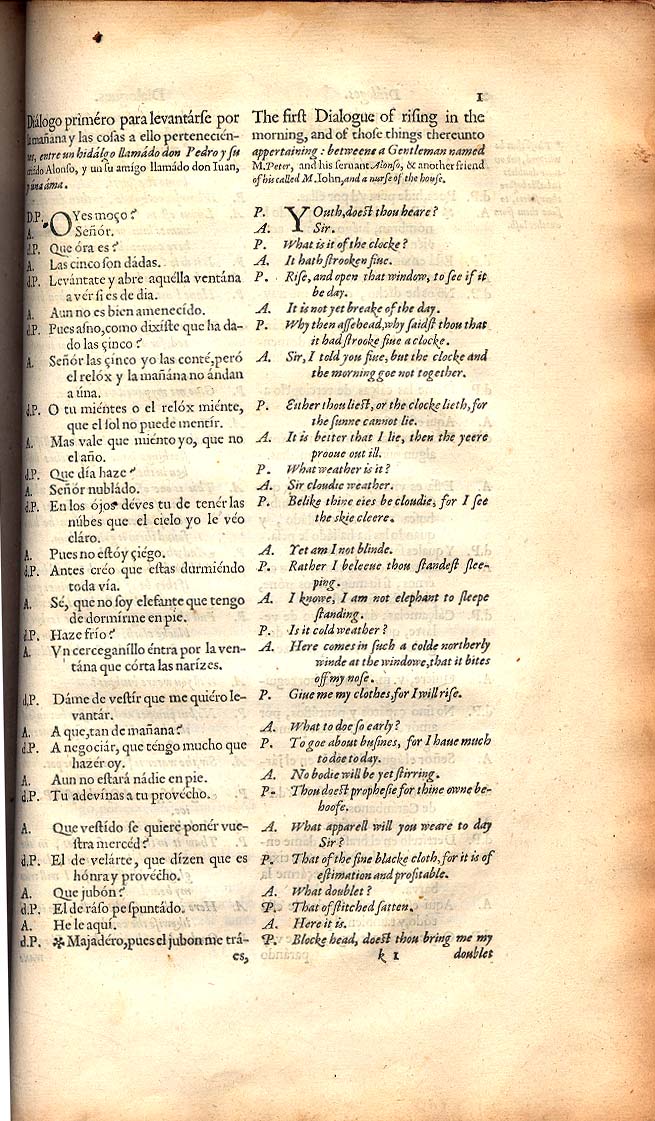 1
Diálogo priméro para levantárse por
la mañana y las cosas a ello pertenecién-
tes, entre un hidálgo llamádo don Pedro y su
criádo Alonso, y un su amígo llamádo don Iuan,
y una áma.
D.P. OYes moço?
A. Señór.
d.P. Que óra es?
A. Las cinco son dádas.
d.P. Levántate y abre aquélla ventána
a vér si es de dia.
A. Aun no es bien amenecído.
d.P. Pues asno, como dixíste que ha da-
do las çinco?
A. Señór las çinco yo las conté, peró
el relóx y la mañána no ándan
a úna.
d.P. O tu miéntes o el relóx miénte,
que el sol no puede mentír.
A. Mas vale que miénto yo, que no
el año.
d.P. Que día haze?
A. Señór nubládo.
d.P. En los ójos déves tu de tenér las
núbes que el cielo yo le véo
cláro.
A. Pues no estóy çiego.
d.P. Antes créo que estas durmiéndo
toda vía.
A. Sé, que no soy elefante que tengo
de dormírme en pie.
d.P. Haze frío?
A. Vn cerceganíllo éntra por la ven-
tána que córta las narízes.
d.P. Dáme de vestír que me quiéro le-
vantár.
A. A que, tan de mañana?
d.P. A negociár, que téngo mucho que
hazér oy.
A. Aun no estará nádie en pie.
d.P. Tu adevínas a tu provécho.
A. Que vestído se quiere ponér vue-
stra mercéd?
d.P. El de velárte, que dízen que es
hónra y provécho.
A. Que jubón?
d.P. El de ráso pespuntádo.
A. He le aquí.
d.P. ✻ Majadéro, pues el jubon me trá-
es,
The first Dialogue of rising in the
morning, and of those things thereunto
appertaining: betweene a Gentleman named
M. Peter, and his servant Alonso, & another friend
of his called M. Iohn, and a nurse of the house.
P. YOuth, doest thou heare?
A. Sir.
P. What is it of the clocke?
A. It hath strooken fiue.
P. Rise, and open that window, to see if it
be day.
A. It is not yet breake of the day.
P. Why then assehead, why saidst thou that
it had strooke fiue a clocke.
A. Sir, I told you fiue, but the clocke and
the morning goe not together.
P. Either thou liest, or the clocke lieth, for
the sunne cannot lie.
A. It is better that I lie, then the yeere
prooue out ill.
P. What weather is it?
A. Sir cloudie weather.
P. Belike thine eies be cloudie, for I see
the skie cleere.
A. Yet am I not blinde.
P. Rather I beleeue thou standest slee-
ping.
A. I knowe, I am not elephant to sleepe
standing.
P. Is it cold weather?
A. Here comes in such a colde northerly
winde at the windowe, that it bites
off my nose.
P. Giue me my clothes, for I will rise.
A. What to doe so early?
P. To goe about busines, for I haue much
to doe to day.
A. No bodie will be yet stirring.
P. Thou doest prophesie for thine owne be-
hoofe.
A. What apparell will you weare to day
Sir?
P. That of the fine blacke cloth, for it is of
estimation and profitable.
A. What doublet?
P. That of stitched satten.
A. Here it is.
P. Blocke head, doest thou bring me my
k 1 doublet